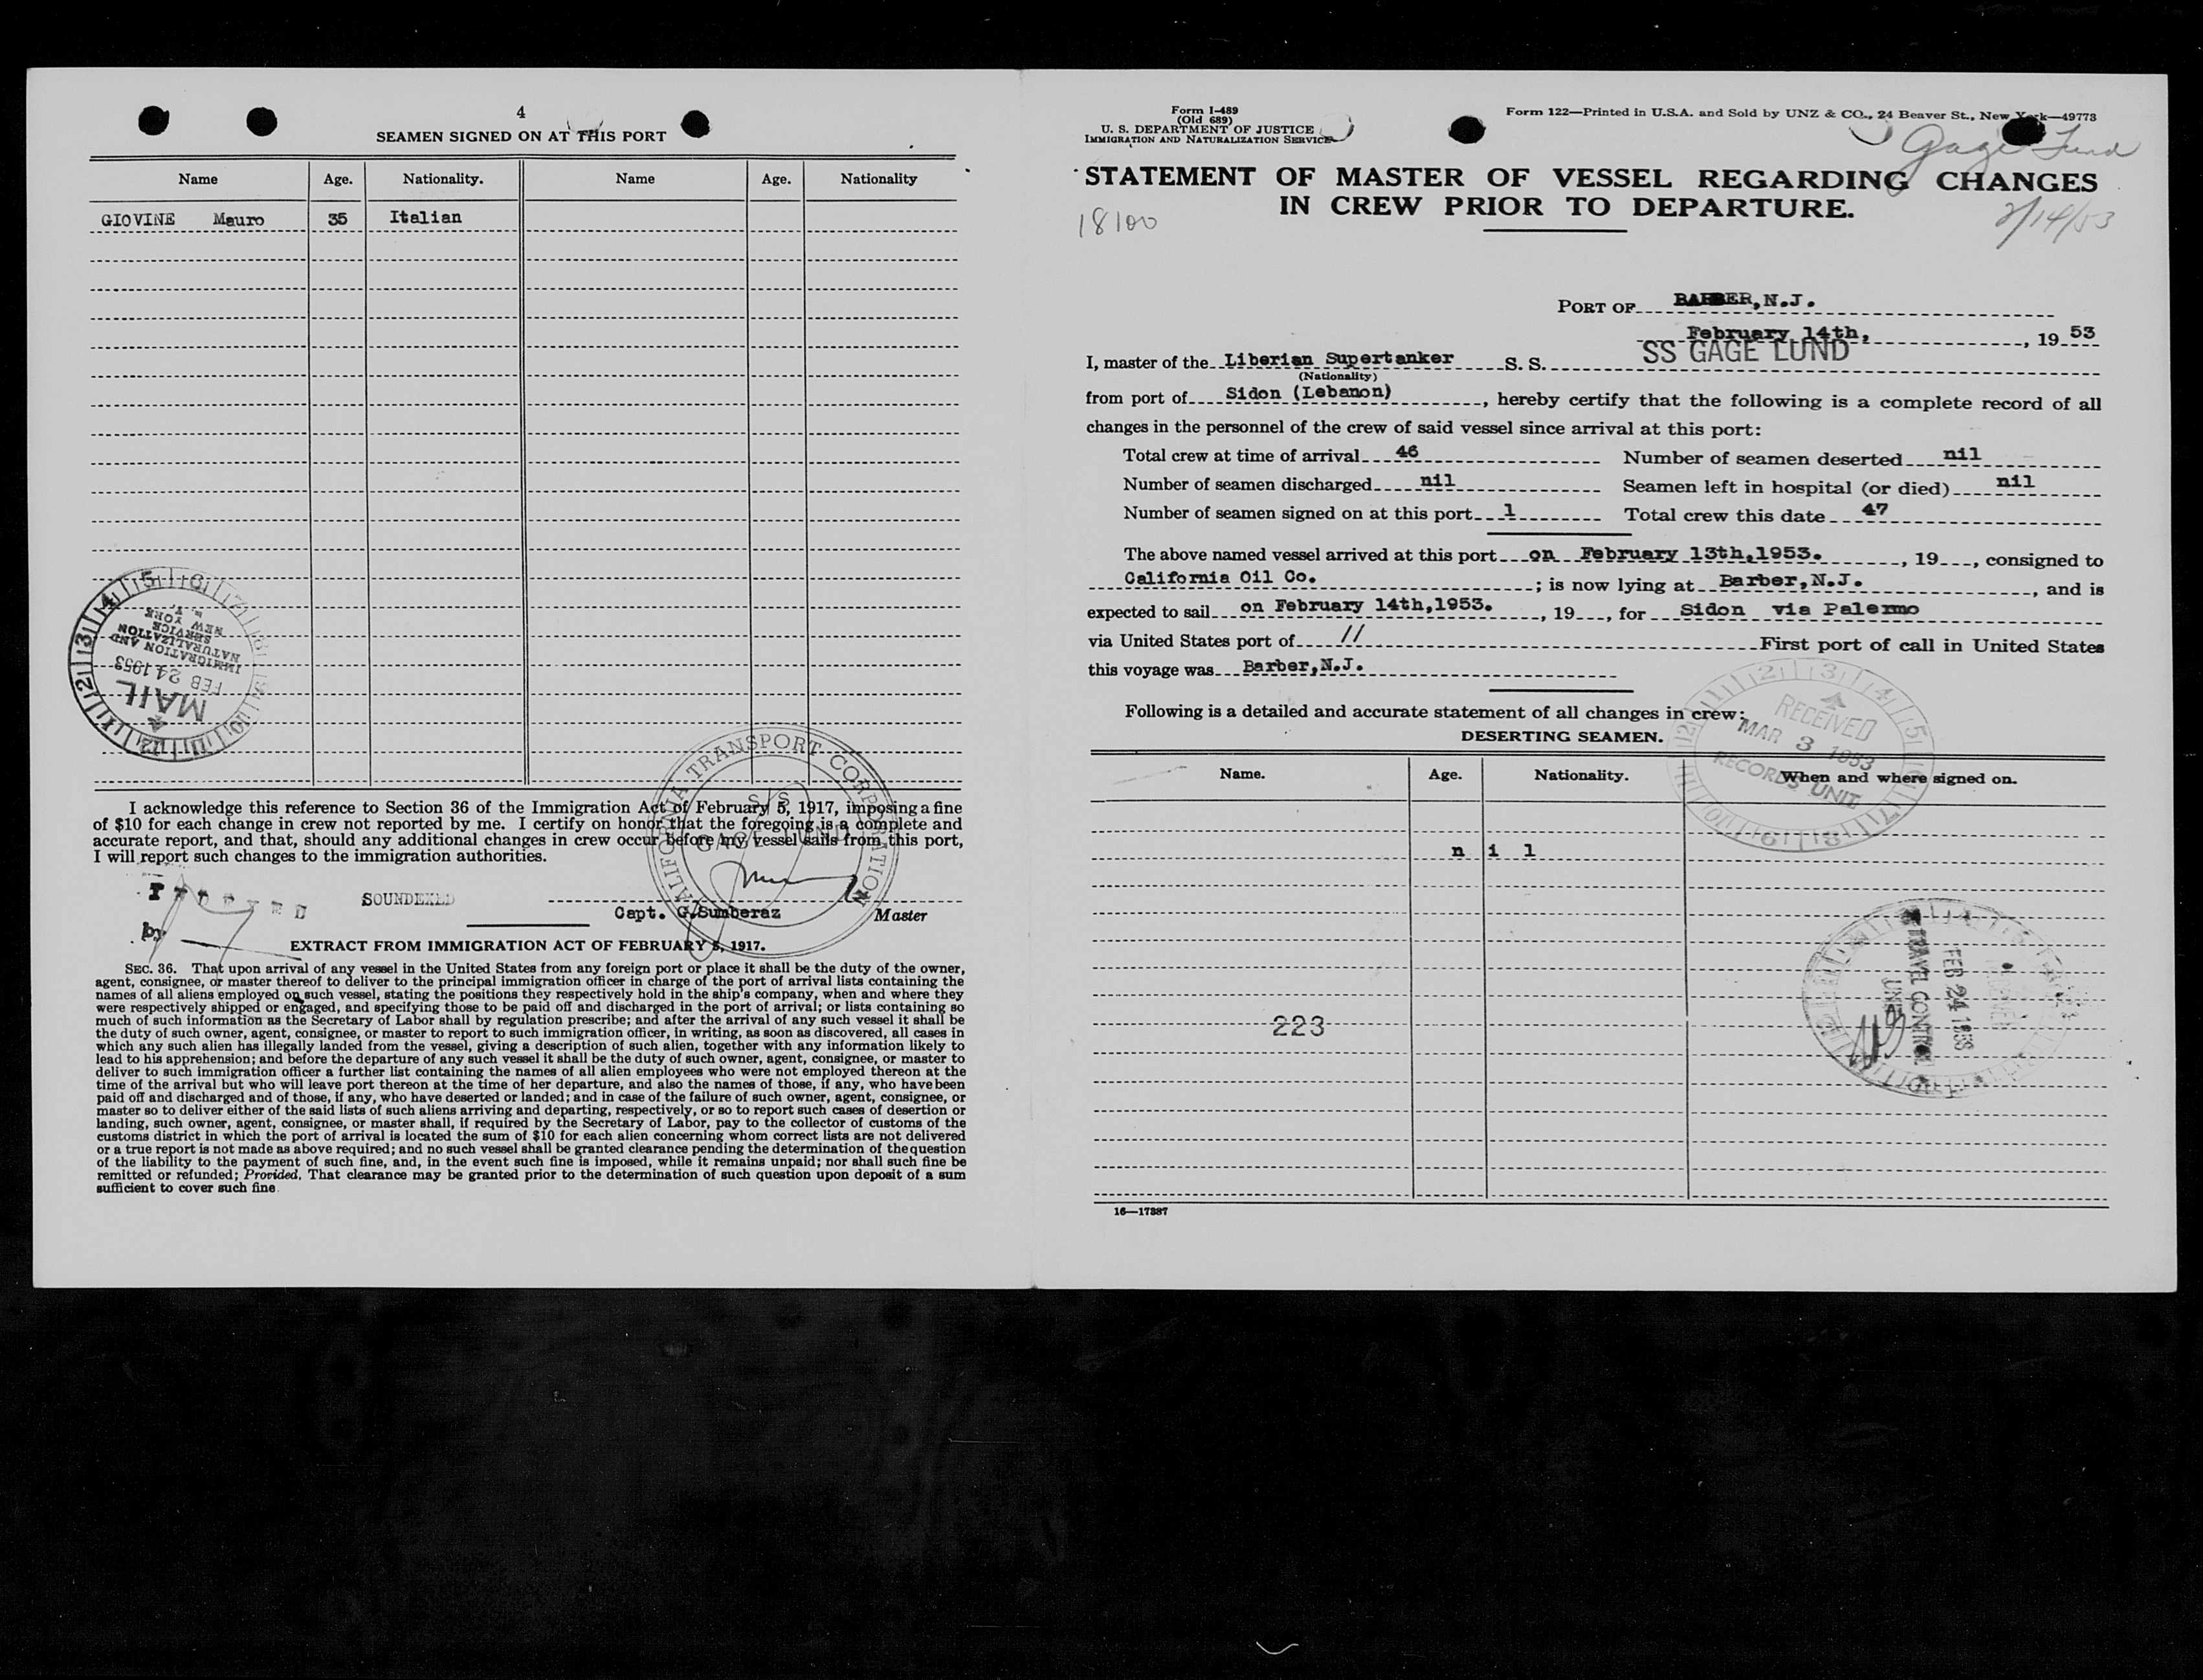 4
SEAMEN SIGNED ON AT THIS PORT
Name Age. Nationality. Name Age. Nationality
GIOVINE Mauro 35 Italian
IMMIGRATION AND
NATURALIZATION
SERVICE
NEW YORK
N. Y.
FEB 24 1953
MAIL
CALIFORNIA TRANSPORT CORPORATION
S/S
GAGE LUND
I acknowledge this reference to Section 36 of the Immigration Act of February 5, 1917, imposing a fine
of $10 for each change in crew not reported by me. I certify on honor that the foregoing is a complete and
accurate report, and that, should any additional changes in crew occur before my vessel sails from this port,
I will report such changes to the immigration authorities.
SOUNDEXED
by
Capt. G.Sumberaz Master
EXTRACT FROM IMMIGRATION ACT OF FEBRUARY 5, 1917.
SEC. 36. That upon arrival of any vessel in the United States from any foreign port or place it shall be the duty of the owner,
agent, consignee, or master thereof to deliver to the principal immigration officer in charge of the port of arrival lists containing the
names of all aliens employed on such vessel, stating the positions they respectively hold in the ship's company, when and where they
were respectively shipped or engaged, and specifying those to be paid off and discharged in the port of arrival; or lists containing so
much of such information as the Secretary of Labor shall by regulation prescribe; and after the arrival of any such vessel it shall be
the duty of such owner, agent, consignee, or master to report to such immigration officer, in writing, as soon as discovered, all cases in
which any such alien has illegally landed from the vessel, giving a description of such alien, together with any information likely to
lead to his apprehension; and before the departure of any such vessel it shall be the duty of such owner, agent, consignee, or master to
deliver to such immigration officer a further list containing the names of all alien employees who were not employed thereon at the
time of the arrival but who will leave port thereon at the time of her departure, and also the names of those, if any, who have been
paid off and discharged and of those, if any, who have deserted or landed; and in case of the failure of such owner, agent, consignee, or
master so to deliver either of the said lists of such aliens arriving and departing, respectively, or so to report such cases of desertion or
landing, such owner, agent, consignee, or master shall, if required by the Secretary of Labor, pay to the collector of customs of the
customs district in which the port of arrival is located the sum of $10 for each alien concerning whom correct lists are not delivered
or a true report is not made as above required; and no such vessel shall be granted clearance pending the determination of the question
of the liability to the payment of such fine, and, in the event such fine is imposed, while it remains unpaid; nor shall such fine be
remitted or refunded; Provided, That clearance may be granted prior to the determination of such question upon deposit of a sum
sufficient to cover such fine.
Form I-489
(Old 689)
U. S. DEPARTMENT OF JUSTICE
IMMIGRATION AND NATURALIZATION SERVICE
Form 122—Printed in U.S.A. and Sold by UNZ & CO., 24 Beaver St., New York—49773
Gage Lund
STATEMENT OF MASTER OF VESSEL REGARDING CHANGES
IN CREW PRIOR TO DEPARTURE.
18100
2/14/53
PORT OF BARBER, N.J.
February 14th, , 19 53
I, master of the Liberian Supertanker S. S. SS GAGE LUND
(Nationality)
from port of Sidon (Lebanon) , hereby certify that the following is a complete record of all
changes in the personnel of the crew of said vessel since arrival at this port:
Total crew at time of arrival 46 Number of seamen deserted nil
Number of seamen discharged nil Seamen left in hospital (or died) nil
Number of seamen signed on at this port 1 Total crew this date 47
The above named vessel arrived at this port on February 13th,1953. , 19 , consigned to
California Oil Co. ; is now lying at Barber,N.J. , and is
expected to sail on February 14th,1953. , 19 , for Sidon via Palermo
via United States port of // First port of call in United States
this voyage was Barber,N.J.
Following is a detailed and accurate statement of all changes in crew:
DESERTING SEAMEN.
RECEIVED
MAR 3 1953
RECORDS UNIT
Name. Age. Nationality. When and where signed on.
n i l
TRAVEL CONTROL
UNIT
FEB 24 1953
223
16—17887